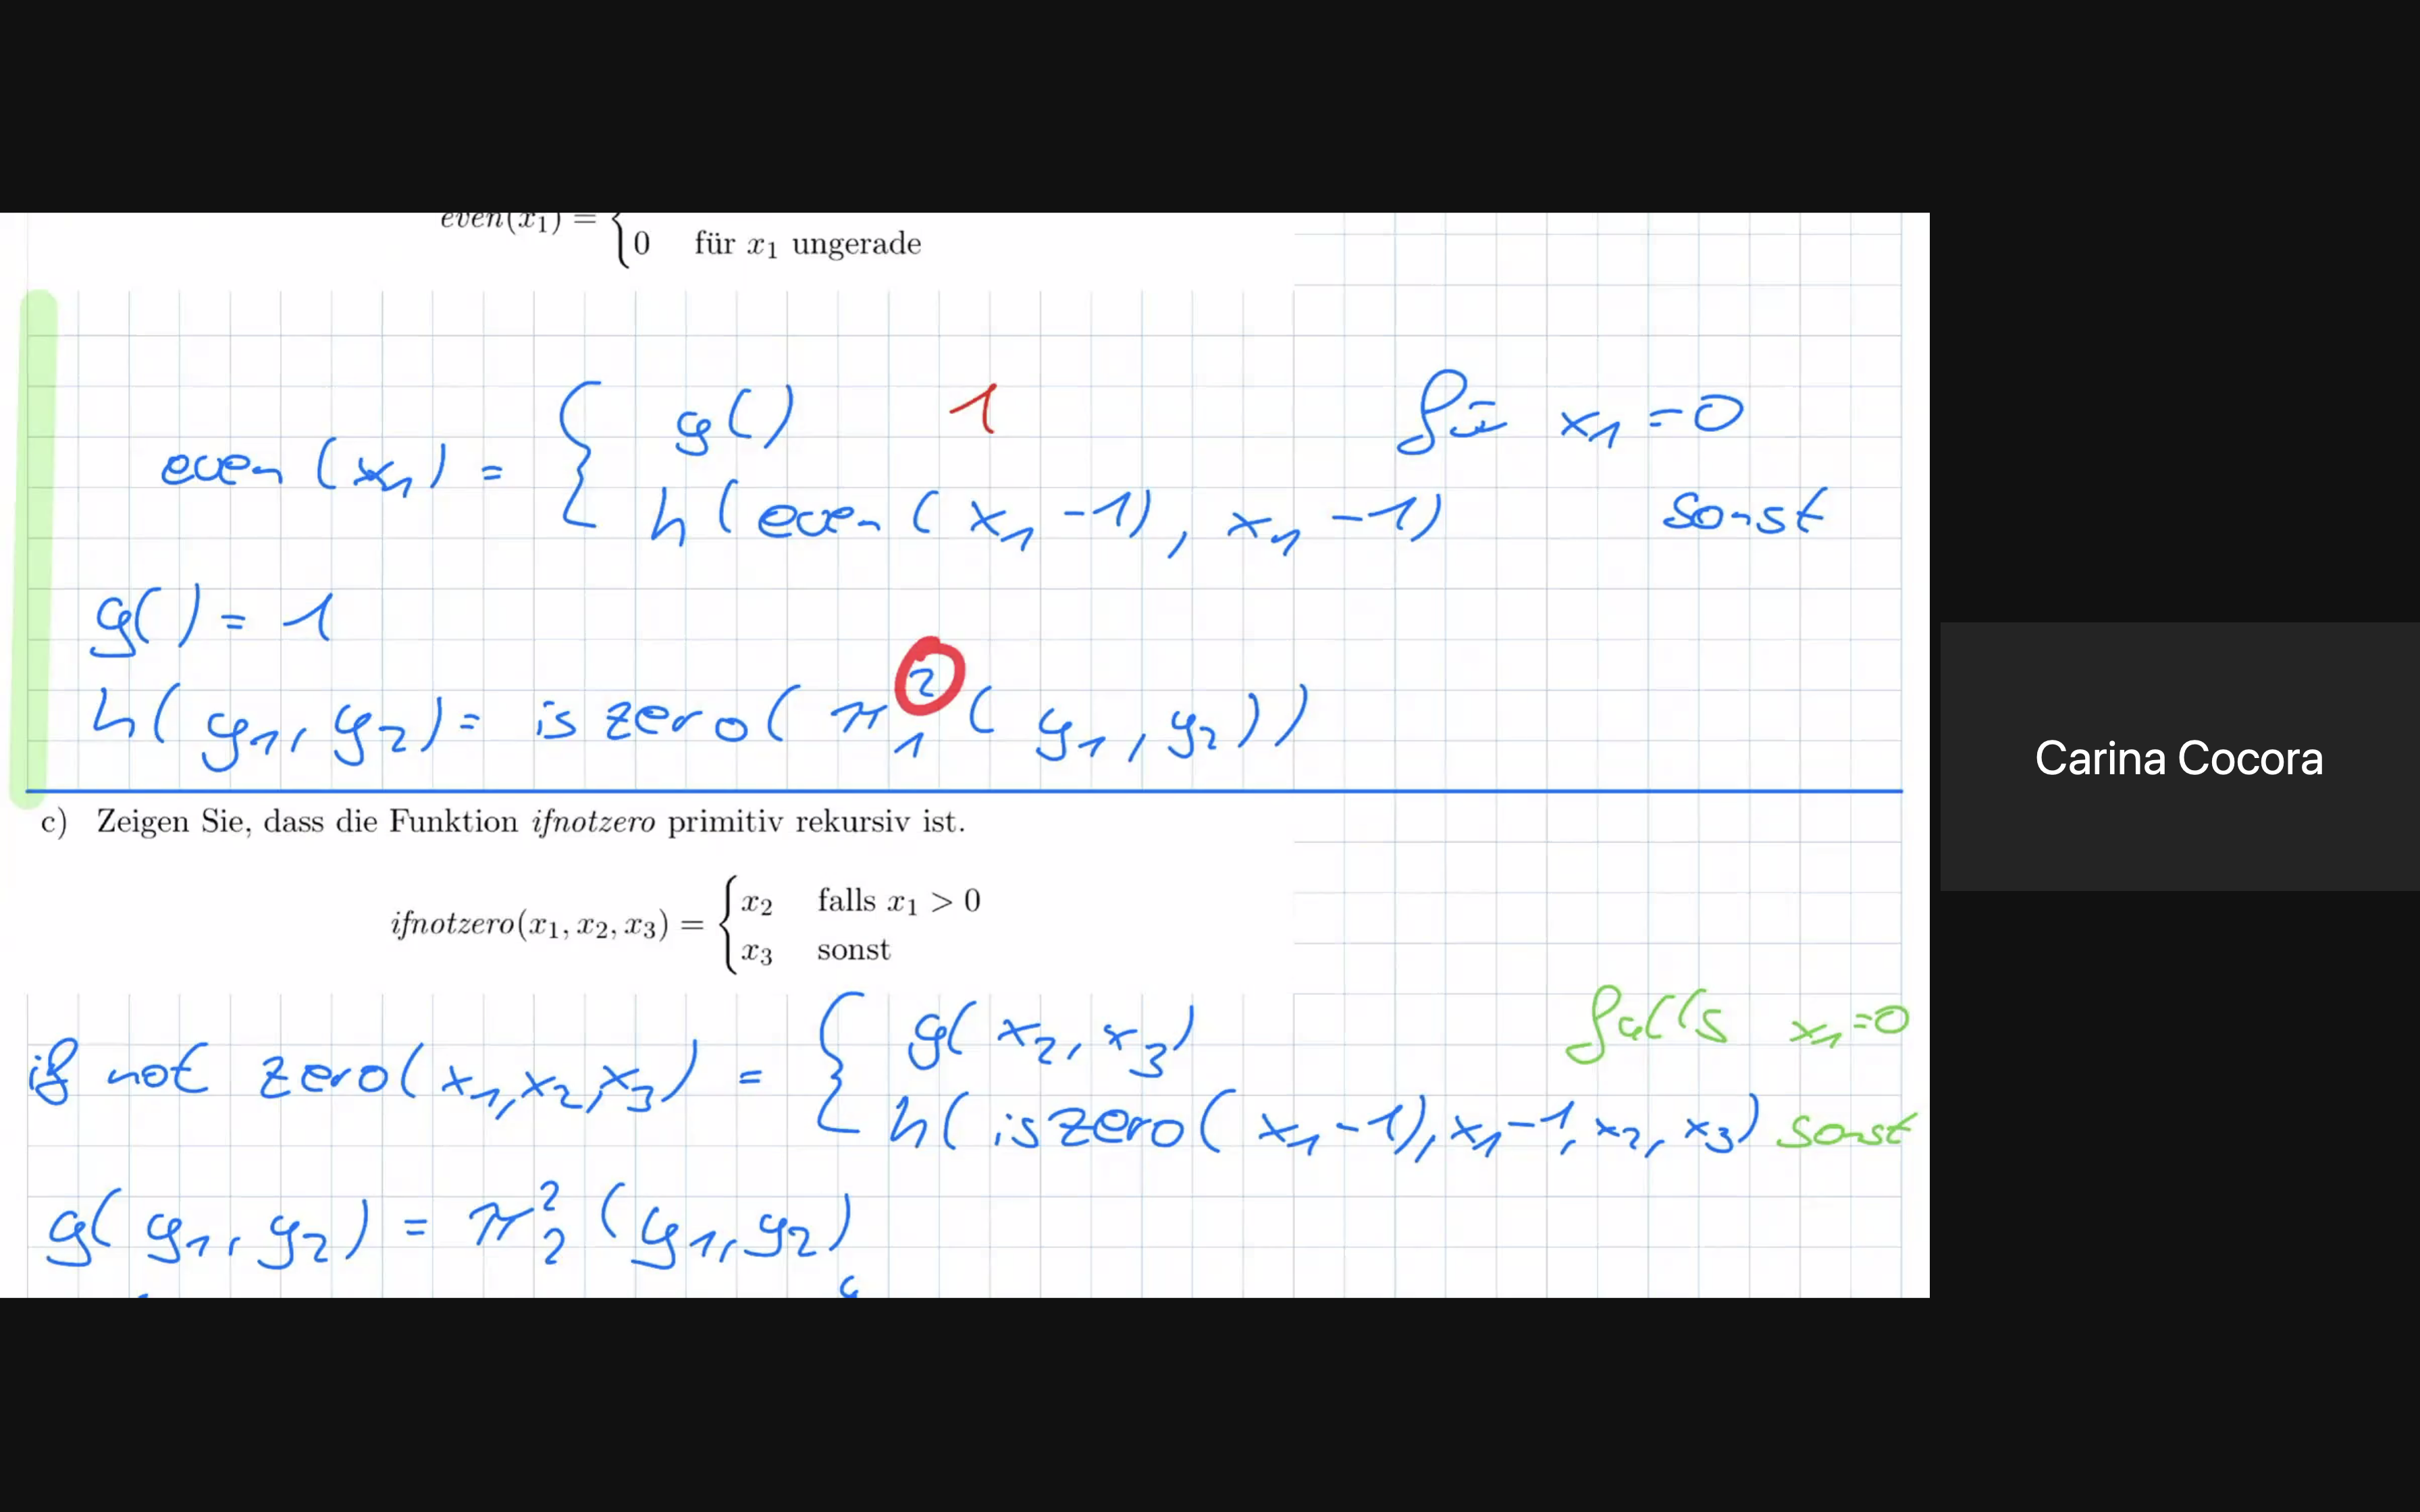 even(x₁) = {
0 für x₁ ungerade
even(x₁) = { g() 1 für x₁ = 0
h(even(x₁ - 1), x₁ - 1) sonst
g() = 1
h(y₁, y₂) = is zero(π₁²(y₁, y₂))
c) Zeigen Sie, dass die Funktion ifnotzero primitiv rekursiv ist.
ifnotzero(x₁, x₂, x₃) = { x₂ falls x₁ > 0
x₃ sonst
if not zero(x₁, x₂, x₃) = { g(x₂, x₃) falls x₁ = 0
h(iszero(x₁ - 1), x₁ - 1, x₂, x₃) sonst
g(y₁, y₂) = π₂²(y₁, y₂)
Carina Cocora